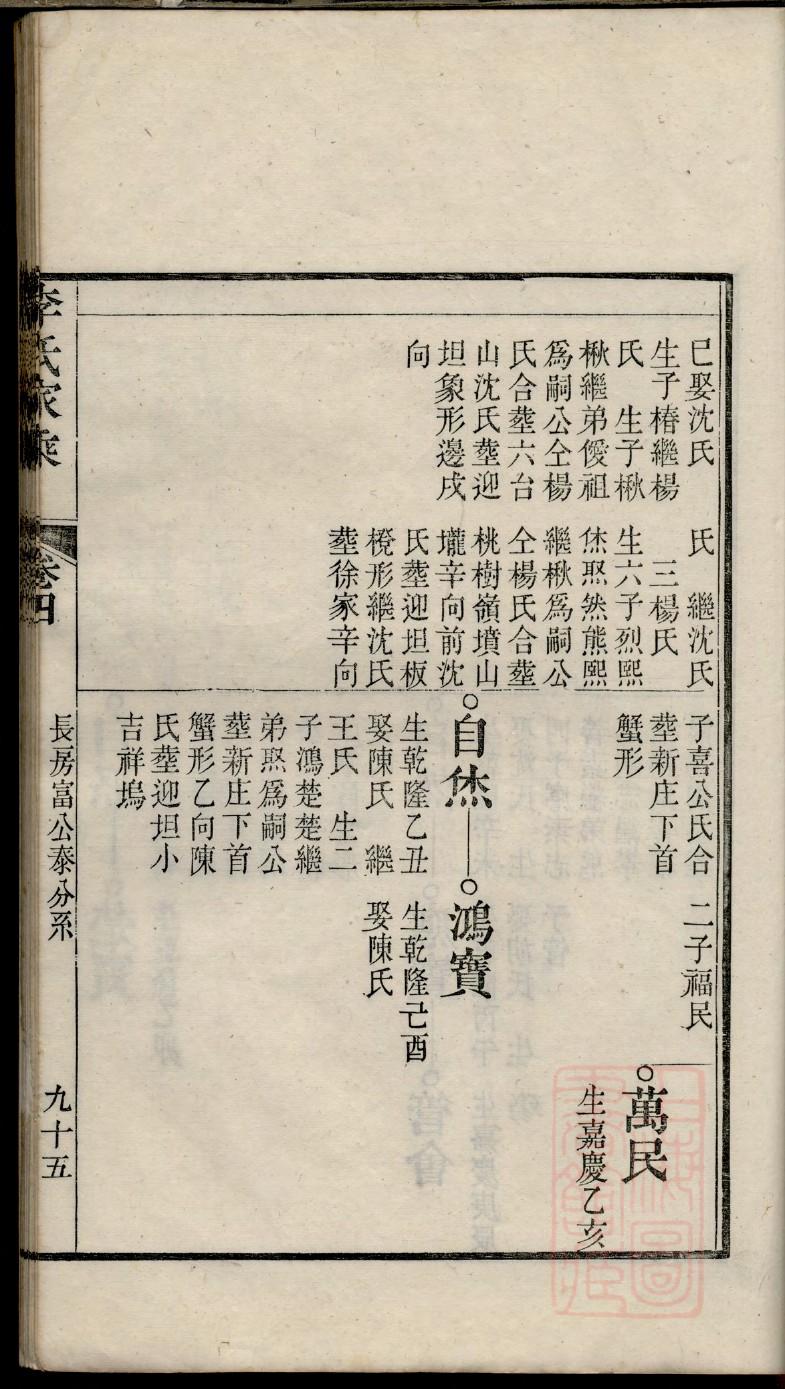 巳娶沈氏
生子椿繼楊
氏　生子楸
楸繼弟僾祖
爲嗣公仝楊
氏合塟六台
山沈氏塟迎
坦象形邊戌
向
氏　繼沈氏
三楊氏
生六子烈熙
烋炁然熊熙
繼楸爲嗣公
仝楊氏合塟
桃樹嶺墳山
壠辛向前沈
氏塟迎坦板
櫈形繼沈氏
塟徐家辛向
子喜公氏合
塟新庄下首
蟹形
自烋
生乾隆乙丑
娶陳氏　繼
王氏　生二
子鴻楚楚繼
弟炁爲嗣公
塟新庄下首
蟹形乙向陳
氏塟迎坦小
吉祥塢
二子福民
鴻寶
生乾隆己酉
娶陳氏
萬民
生嘉慶乙亥
李氏家乘
卷四
長房富公泰分系
九十五